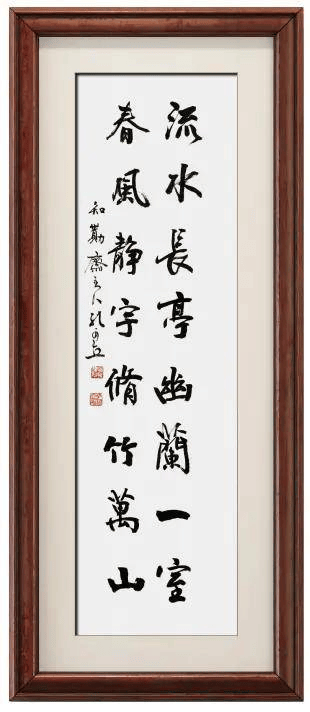 流水長亭幽蘭一室
春風靜宇脩竹萬山
知勤齋主人